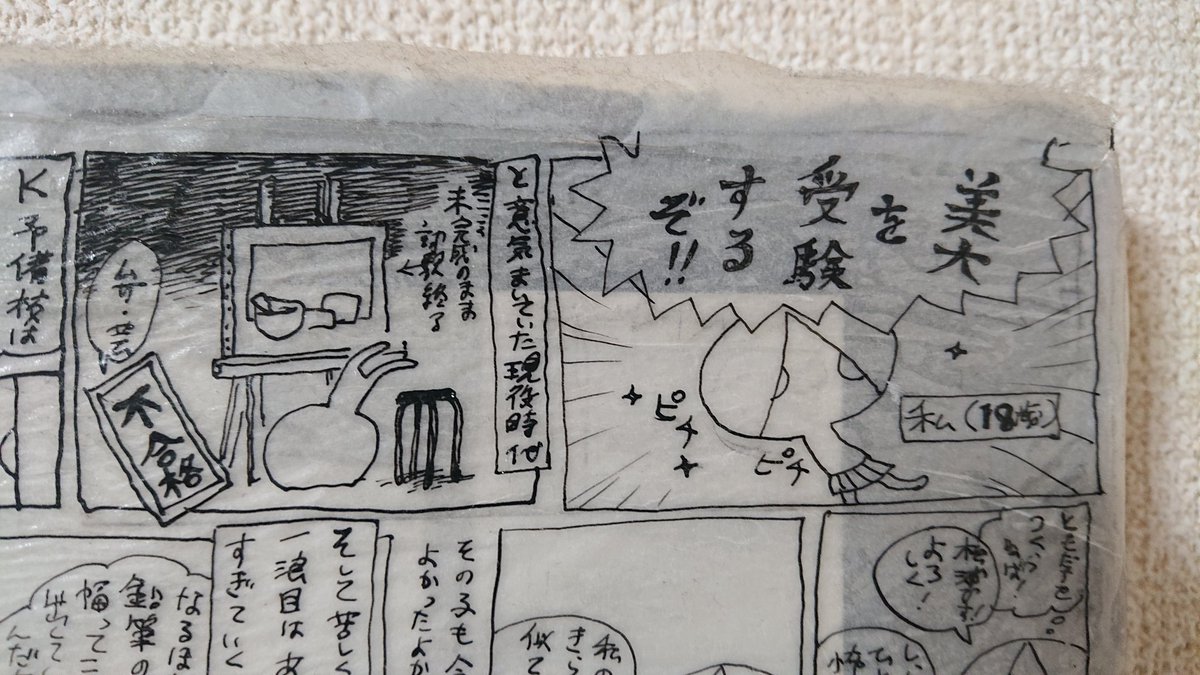 美大
を
受験
する
ぞ!!
私(18歳)
ピチ
ピチ
と意気まいていた現役時代
未完成のまま
試験終了
ム・サ・芸
不合格
K予備校は
つくら
ねば!
よろ
しく!
私の
似て
その子も
よかったよか
そして苦しく
一浪目は
すぎていく
なるほ
鉛筆の
幅って
出てし
んだ